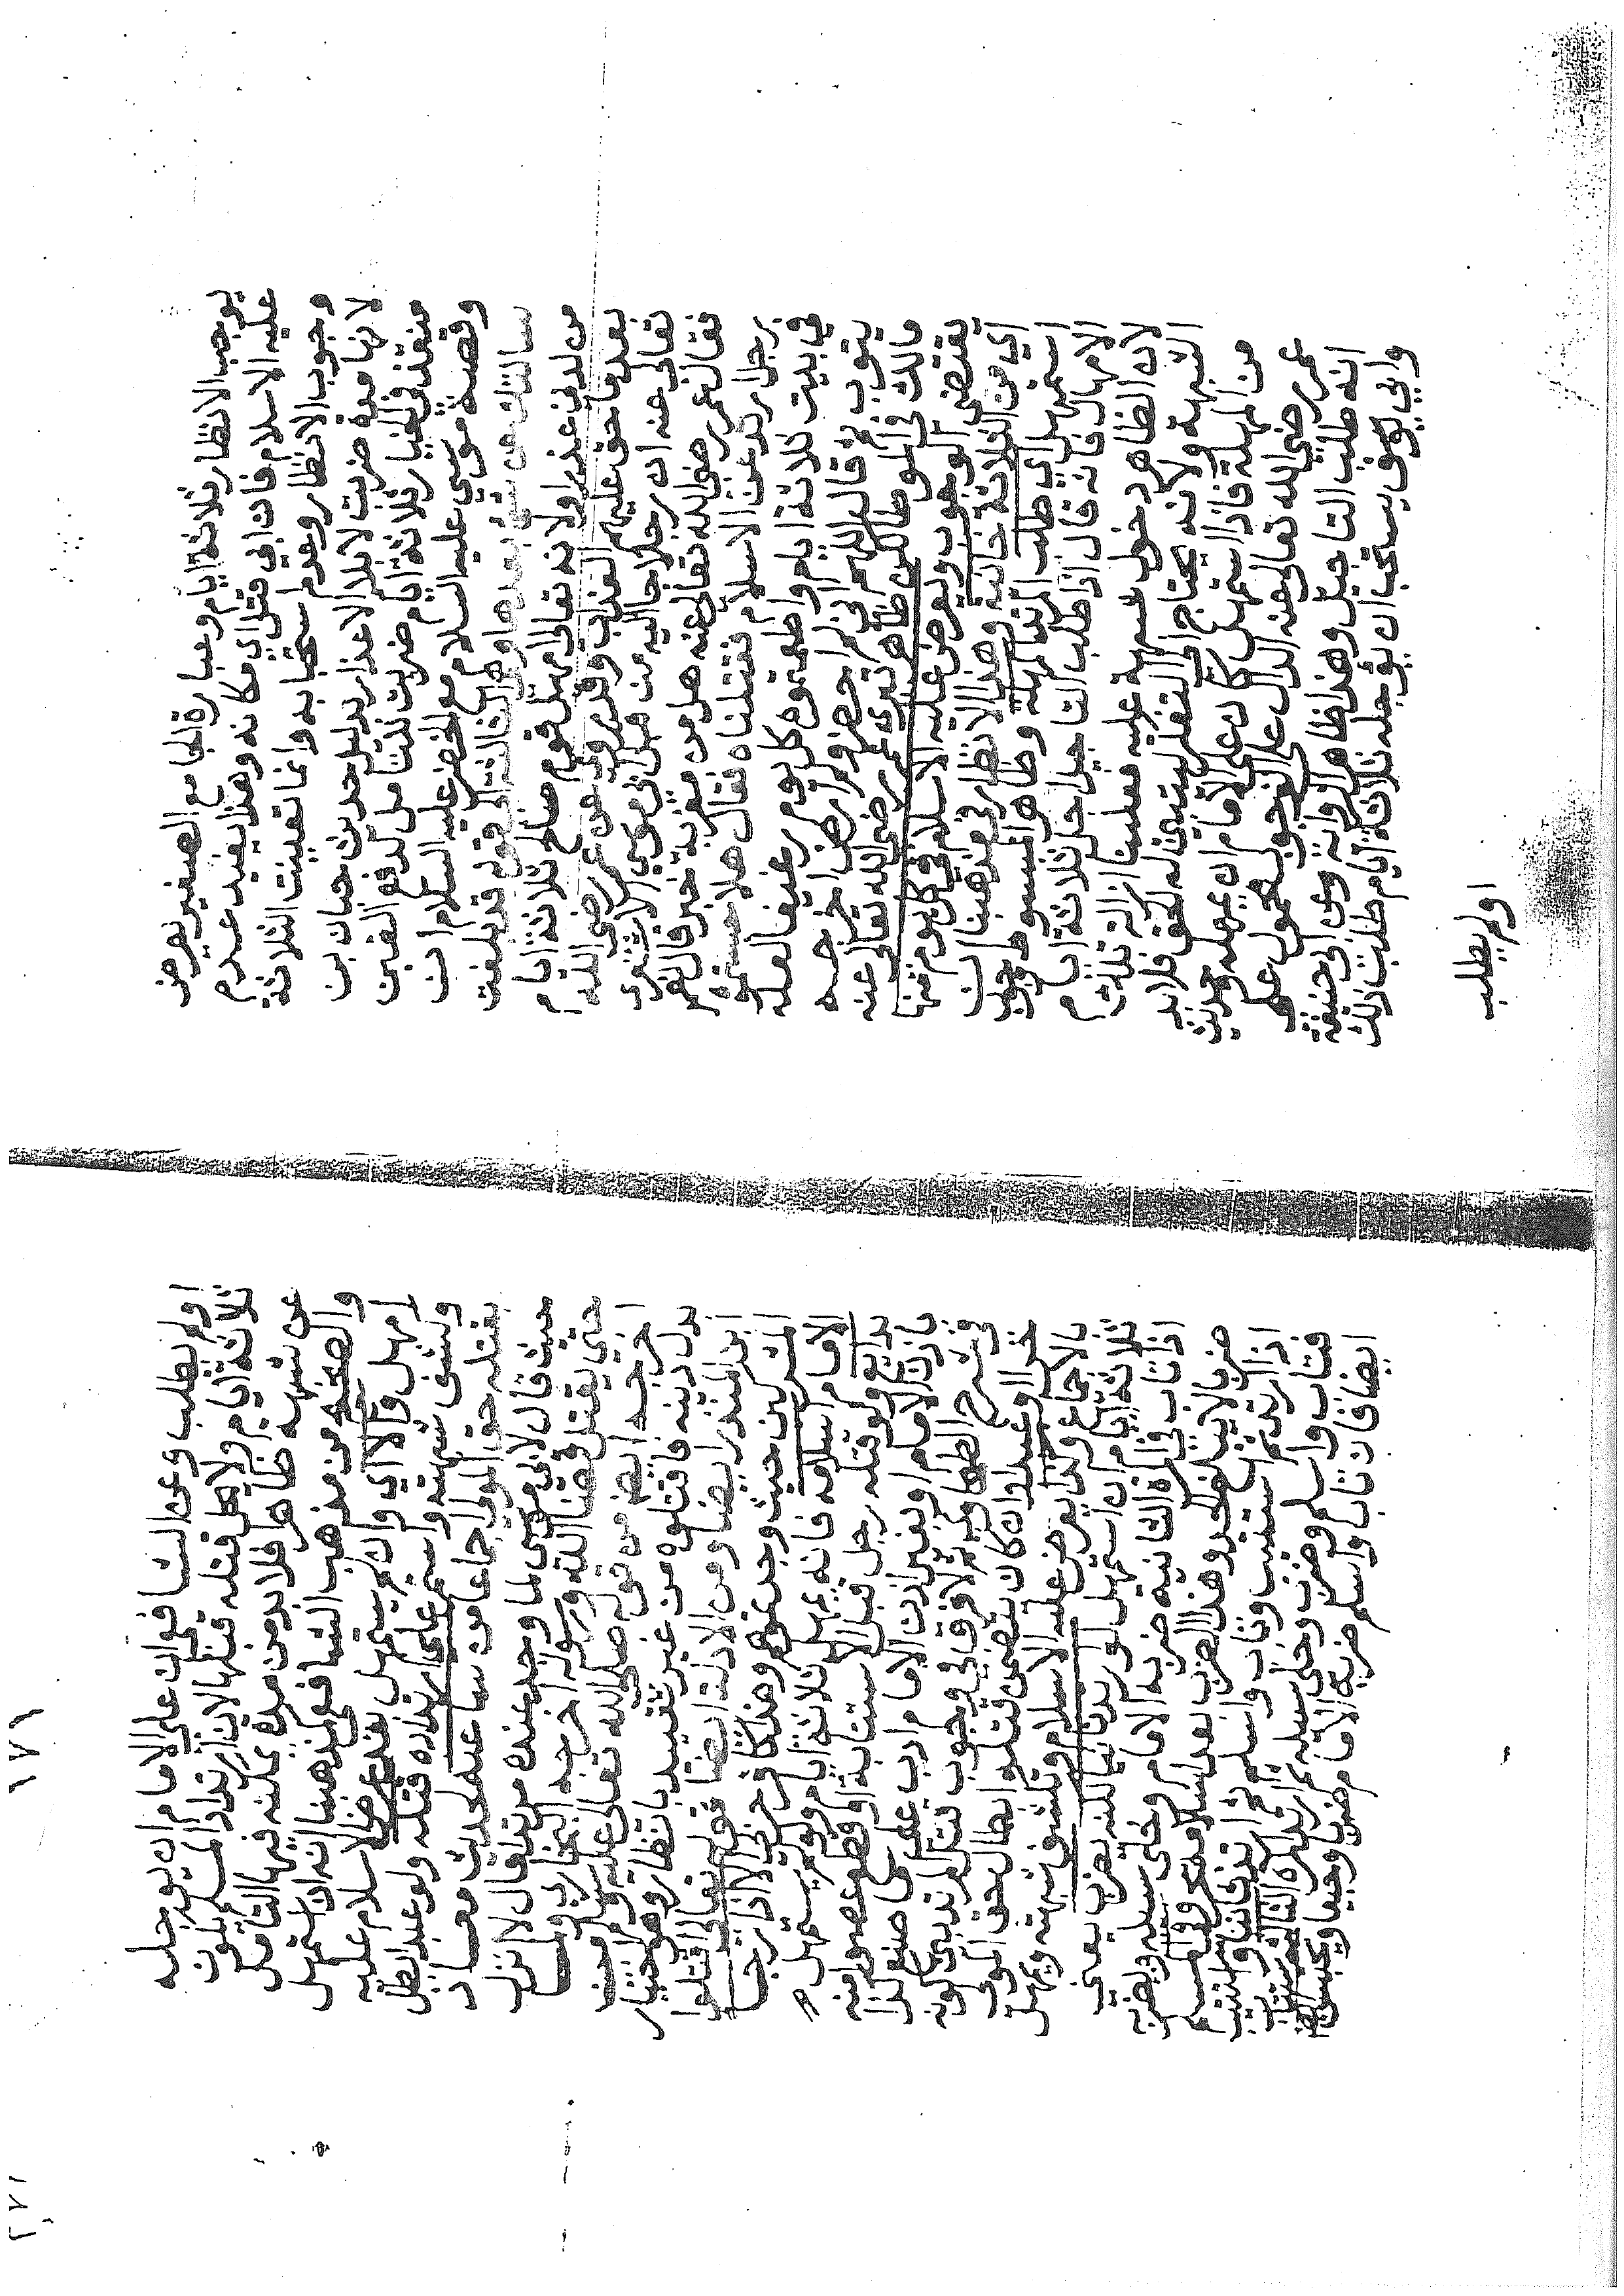 يوجب الانظار ثلاثة ايام وعبارة الجامع الصغير يعرض
عليه الاسلام فان ابي قتل اي مكانه وهذا يفيد عدم
وجوب الانظار وعدم استحبابه وانما تعينت الثلاثة
لانها مدة ضربت لابلاء الاعذار بدليل حديث حبان بن
منقذ في الخيار ثلاثة ايام ضربت للتامل لدفع الغبن
وقصة موسي عليه السلام مع الخضر عليه السلام ان
سالتك عن شئ بعدها وهي الثالثة الي قوله قد بلغت
من لدني عذرا ولانه تعالي امهل قوم صالح ثلاثة ايام
بعد ما حق عليهم العذاب وقد روي عن عمر رضي الله
تعالي عنه ان رجلا جا اليه من قبل ابي موسي الاشعري
فقال عمر رضي الله تعالي عنه هل من مغربة خبر قال نعم
رجل ارتد عن الاسلام فقتلناه فقال هلا حبستموه
في بيت ثلاثة ايام واطعمتموه كل يوم رغيفا لعله
يتوب ثم قال اللهم اني لم احضر ولم ارض اخرجه
مالك في الموطا لكن ظاهر تبري عمر رضي الله تعالي عنه
يقتضي الوجوب ويعرض عليه الاسلام في كل يوم منها
اي من الثلاثة خانية وهذا الانظار في مذهبنا ان
استمهل اي طلب المرتد المهلة وظاهر المبسوط وجوب
الامهال فانه قال اذا طلب التاجيل اجل ثلاثة ايام
لان الظاهر دخول شبهة عليه فعلينا ازالة تلك
الشبهة ولانه يحتاج الي التفكر ليتبين له الحق فلا بد
من المهلة فاذا استمهل كان علي الامام ان يمهله وحديث
عمر رضي الله تعالي عنه الدال علي الوجوب محمول علي
انه طلب التاجيل وهذا ظاهر الرواية وعن ابي حنيفة
وابي يوسف يستحب ان يؤجله ثلاثة ايام طلب ذلك
او لم يطلب
١٧١
او لم يطلب وعن الشافعي ان علي الامام ان يوجله
ثلاثة ايام ولا يحل قتله قبلها لان ارتداد المسلم يكون
عن شبهة ظاهرا فلا بد من مدة يمكنه فيها التامل
والصحيح من مذهب الشافعي كمذهبنا انه ان استمهل
امهل والا اي وان لم يستمهل بعد عرض الاسلام عليه
وكشف شبهته واستمر علي ارتداده قتله ولو عبدا بطل
بقتله حق المولي اجماعا من ساعته لحديث معاذ
حيث قال لابي موسي لما وجد عنده مرتدا قال لا انزل
حتي يقتل قضا الله ورسوله اخرجه البخاري ومسلم
اخرجه ايضا من قوله صلي الله تعالي عليه وسلم من
بدل دينه فاقتلوه من غير تقييد بانتظار وهو اختيار
ابن المنذر ايضا ومن الادلة ايضا قوله تعالي اقتلوا
المشركين حيث وجدتموهم وهذا كافر حربي الا اذا رجا
الامام اسلامه فانه يمهل ثلاثة ايام ولو لم يستمهل
بدايع ولو قتله رجل قبل الاستتابة او قطع عضوا منه
باذن الامام او بغير اذن الامام ادب علي ما صنع كذا
في شرح الطحاوي ثم لا فرق في وجوب قتل المرتد بين كونه
حرا او عبدا وان كان يتضمن قتله ابطال حق المولي
بالاجماع وكذا يعرض عليه الاسلام وتكشف شبهته ويمهل
ثلاثة ايام ان استمهل لو ارتد ثانيا لكنه يضرب يعني
اذا تاب في المرة الثانية ضربه الامام وخلي سبيله ويضربه
ضربا لا يبلغ الحد وهذا الضرب بعد اسلامه وقالوا
اذا ارتد ثم استتيب وتاب واسلم ثم ارتد ثانيا واستتيب
فتاب واسلم وضرب وخلي سبيله ثم ارتد كرة ثالثة استتاب
ايضا فان تاب واسلم ضربه الامام ضربا وجيعا ويحبس
١٧٢